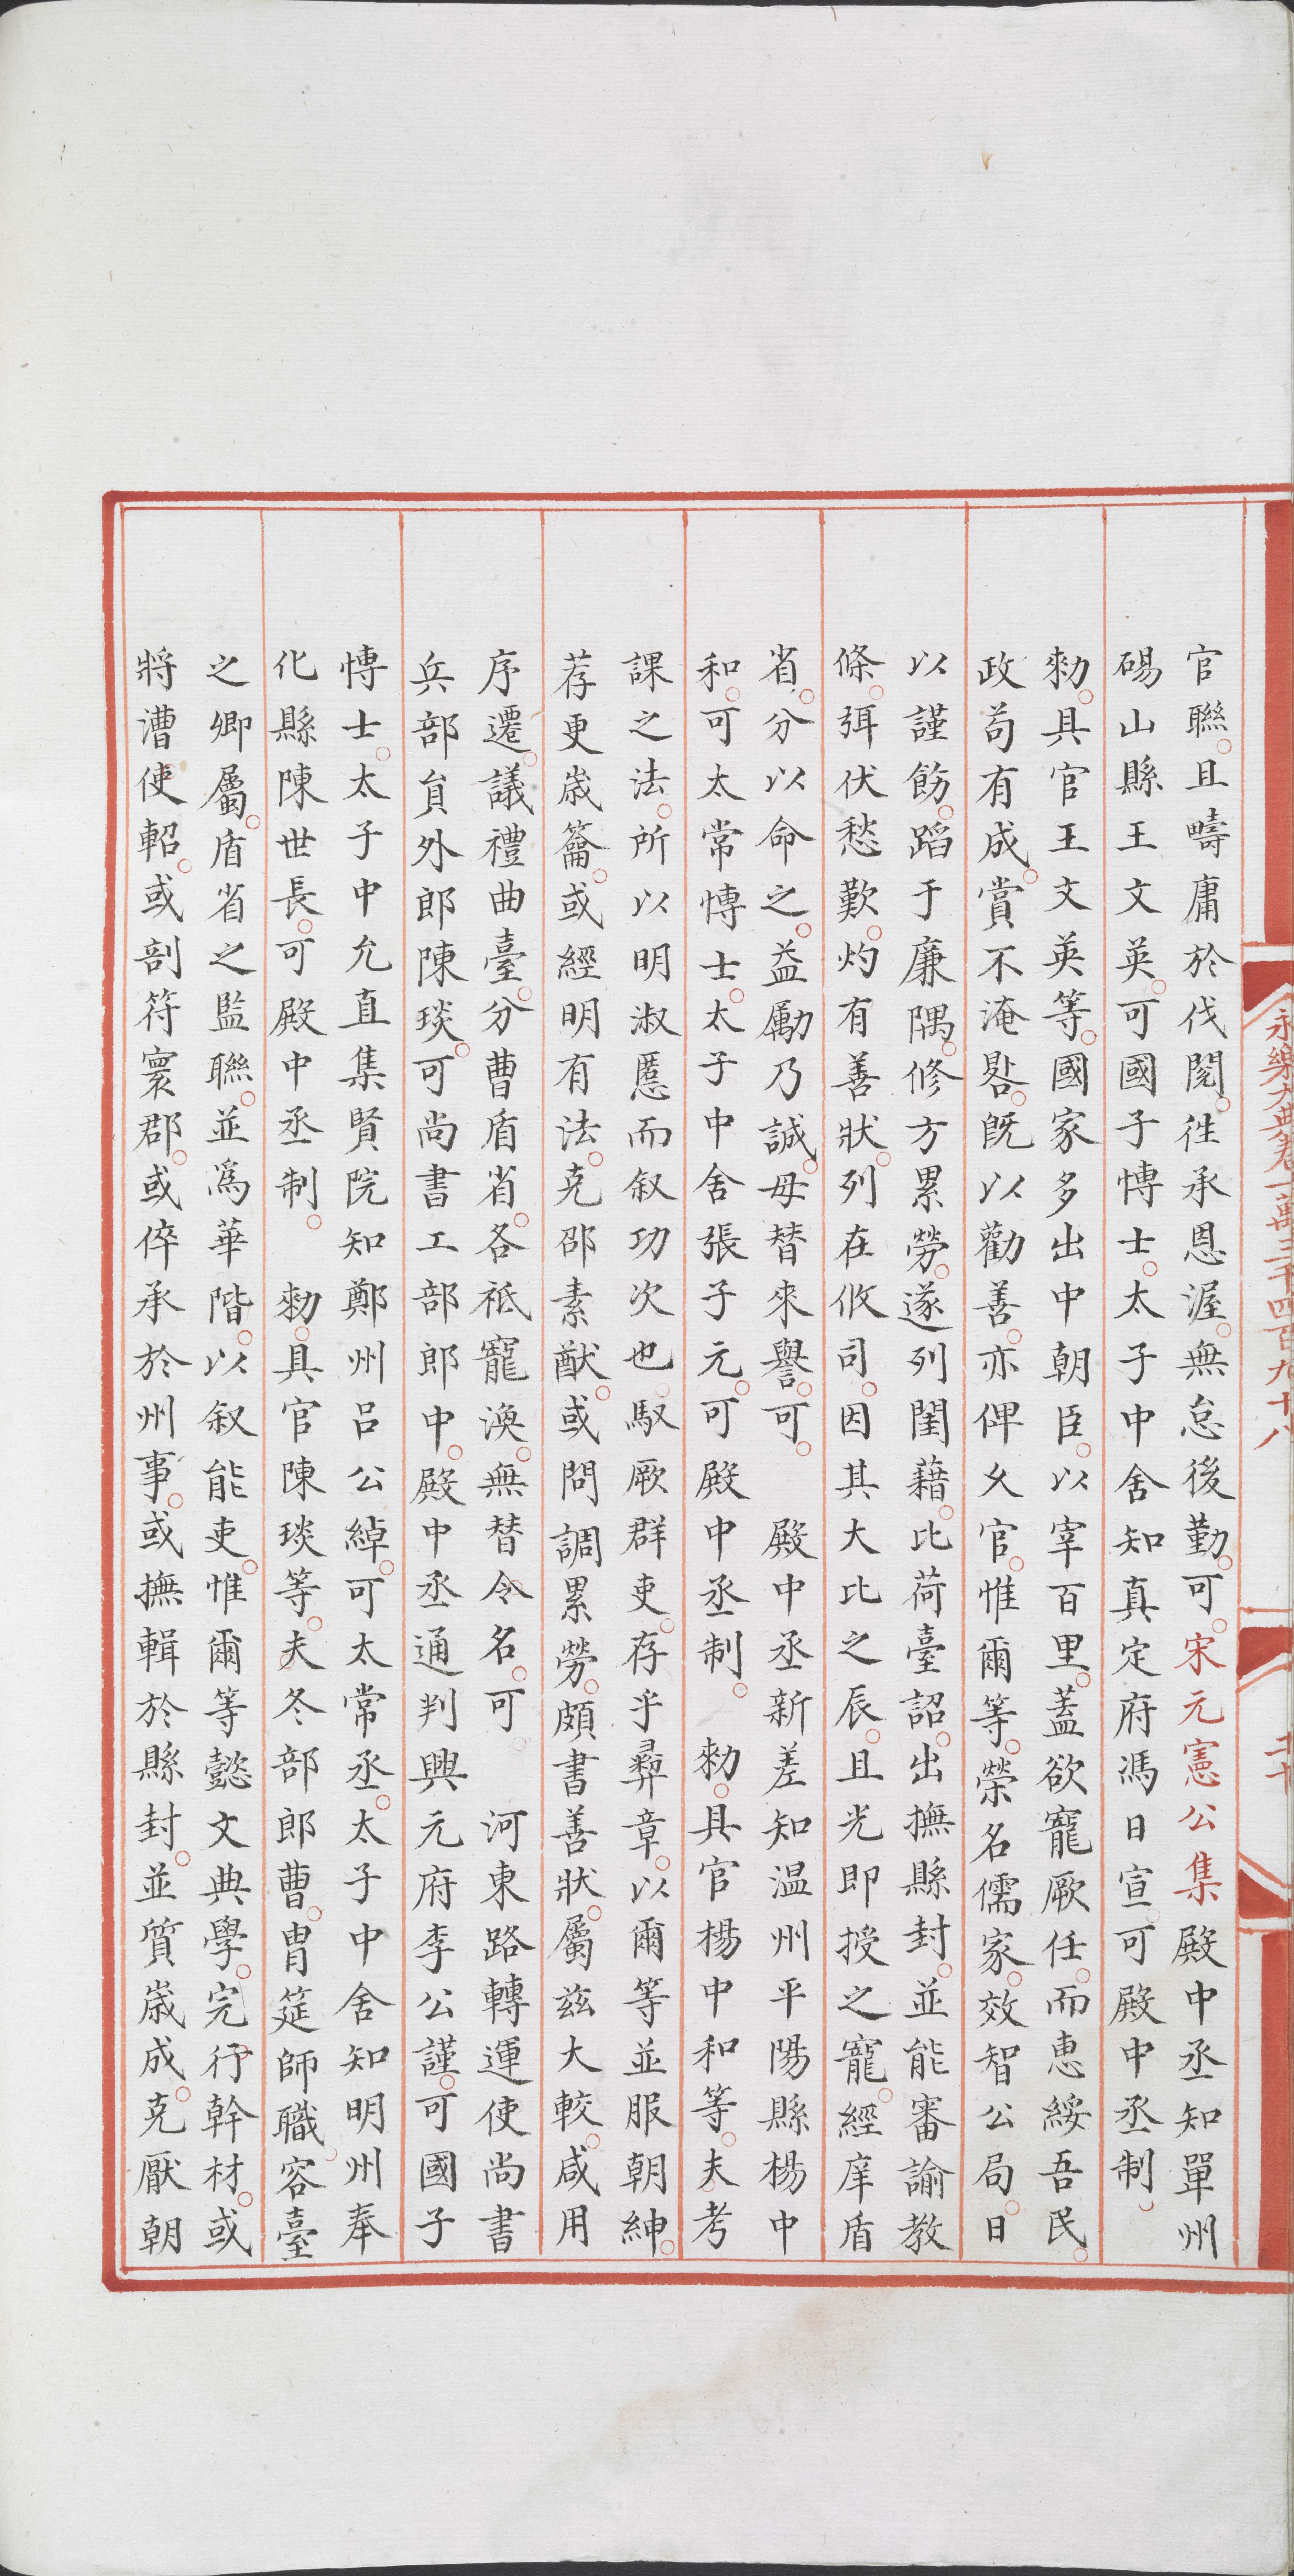 永樂大典卷一萬三千四百九十八
二十
官聮且疇庸於伐閱徃承恩渥無怠後勤可宋元憲公集殿中丞知單州
碭山縣王文英可國子博士太子中舍知真定府馮日宣可殿中丞制
勑具官王文英等國家多出中朝臣以宰百里蓋欲寵厥任而惠綏吾民
政茍有成賞不淹晷旣以勸善亦俾乆官惟爾等榮名儒家效智公局日
以謹飭蹈于廉隅修方累勞遂列閨藉比荷臺詔出撫縣封並能審諭教
條弭伏愁歎灼有善狀列在攸司因其大比之辰且光即授之寵經庠盾
省分以命之益勵乃誠毋替來譽可　殿中丞新差知温州平陽縣楊中
和可太常博士太子中舍張子元可殿中丞制　勑具官楊中和等夫考
課之法所以明淑慝而叙功次也馭厥群吏存乎彞章以爾等並服朝紳
荐更歲籥或經明有法克邵素猷或問調累勞頗書善狀屬兹大較咸用
序遷議禮曲臺分曹盾省各祗寵渙無替令名可　河東路轉運使尚書
兵部員外郎陳琰可尚書工部郎中殿中丞通判興元府李公謹可國子
博士太子中允直集賢院知鄭州吕公綽可太常丞太子中舍知明州奉
化縣陳世長可殿中丞制　勑具官陳琰等夫冬部郎曹胄筵師職容臺
之卿屬盾省之監聮並爲華階以叙能吏惟爾等懿文典學完行幹材或
將漕使軺或剖符寰郡或倅承於州事或撫輯於縣封並質歲成克厭朝